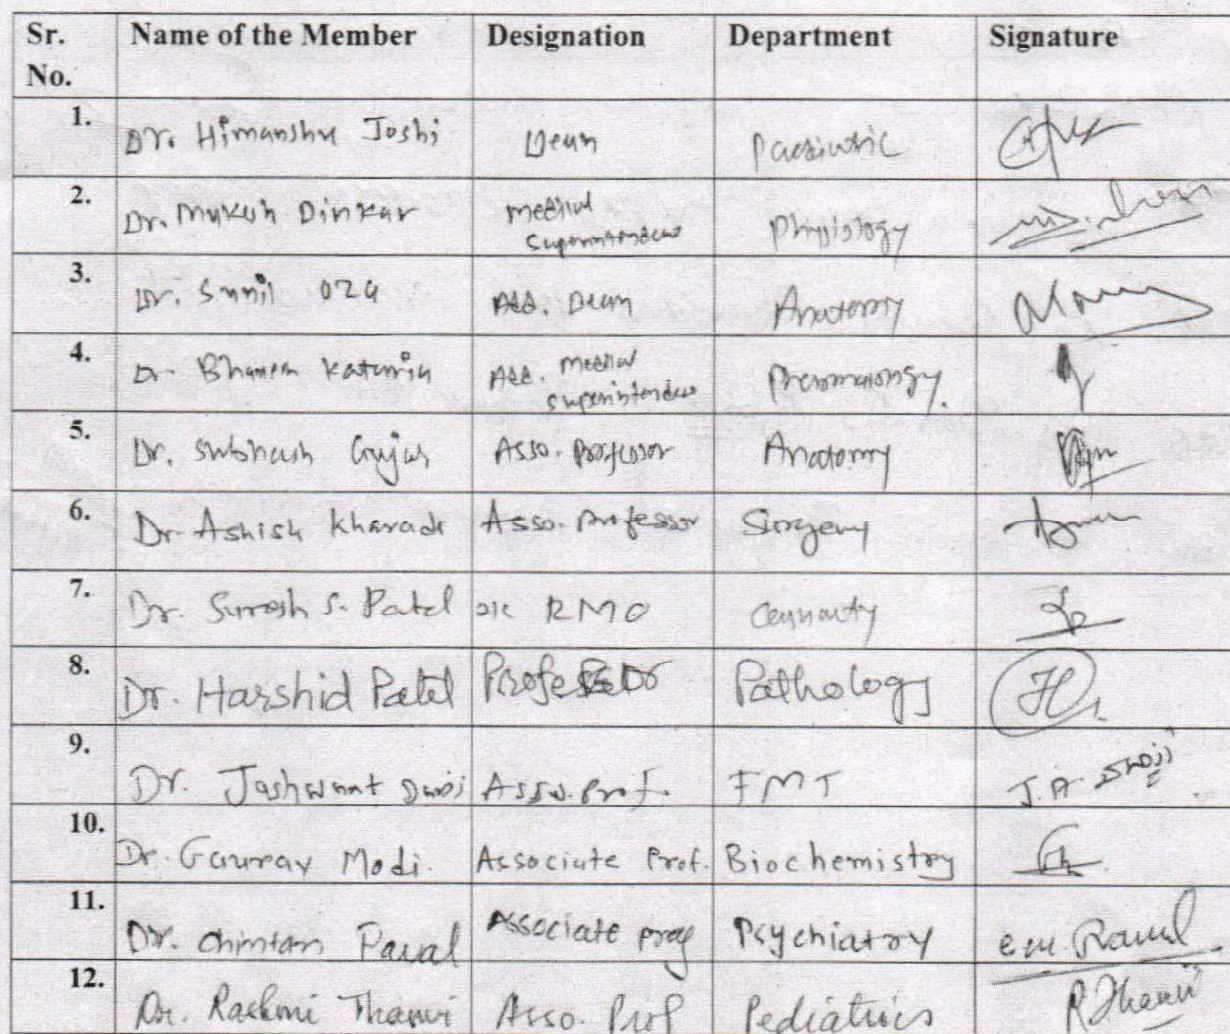 Sr. No. Name of the Member Designation Department Signature
1. Dr. Himanshu Joshi Dean
2. Dr. Mukesh Dinkar Medical Superintendent Physiology
3. Dr. Sunil Oza Add. Dean Anatomy
4. Dr. Kataria Add. Medical Superintendent
5. Dr. Subhash Gujar Asso. Professor Anatomy
6. Dr. Ashish Kharadi Asso. Professor Surgery
7. Dr. Suresh S. Patel RMO
8. Dr. Harshid Patel Professor Pathology
9. Dr. Jashwant Asso. Prof. FMT J.A.
10. Dr. Gaurav Modi. Associate Prof. Biochemistry
11. Dr. Chintan Raval Associate prof Psychiatry Raval
12. Dr. Rashmi Thanvi Asso. Prof Pediatrics R Thanvi